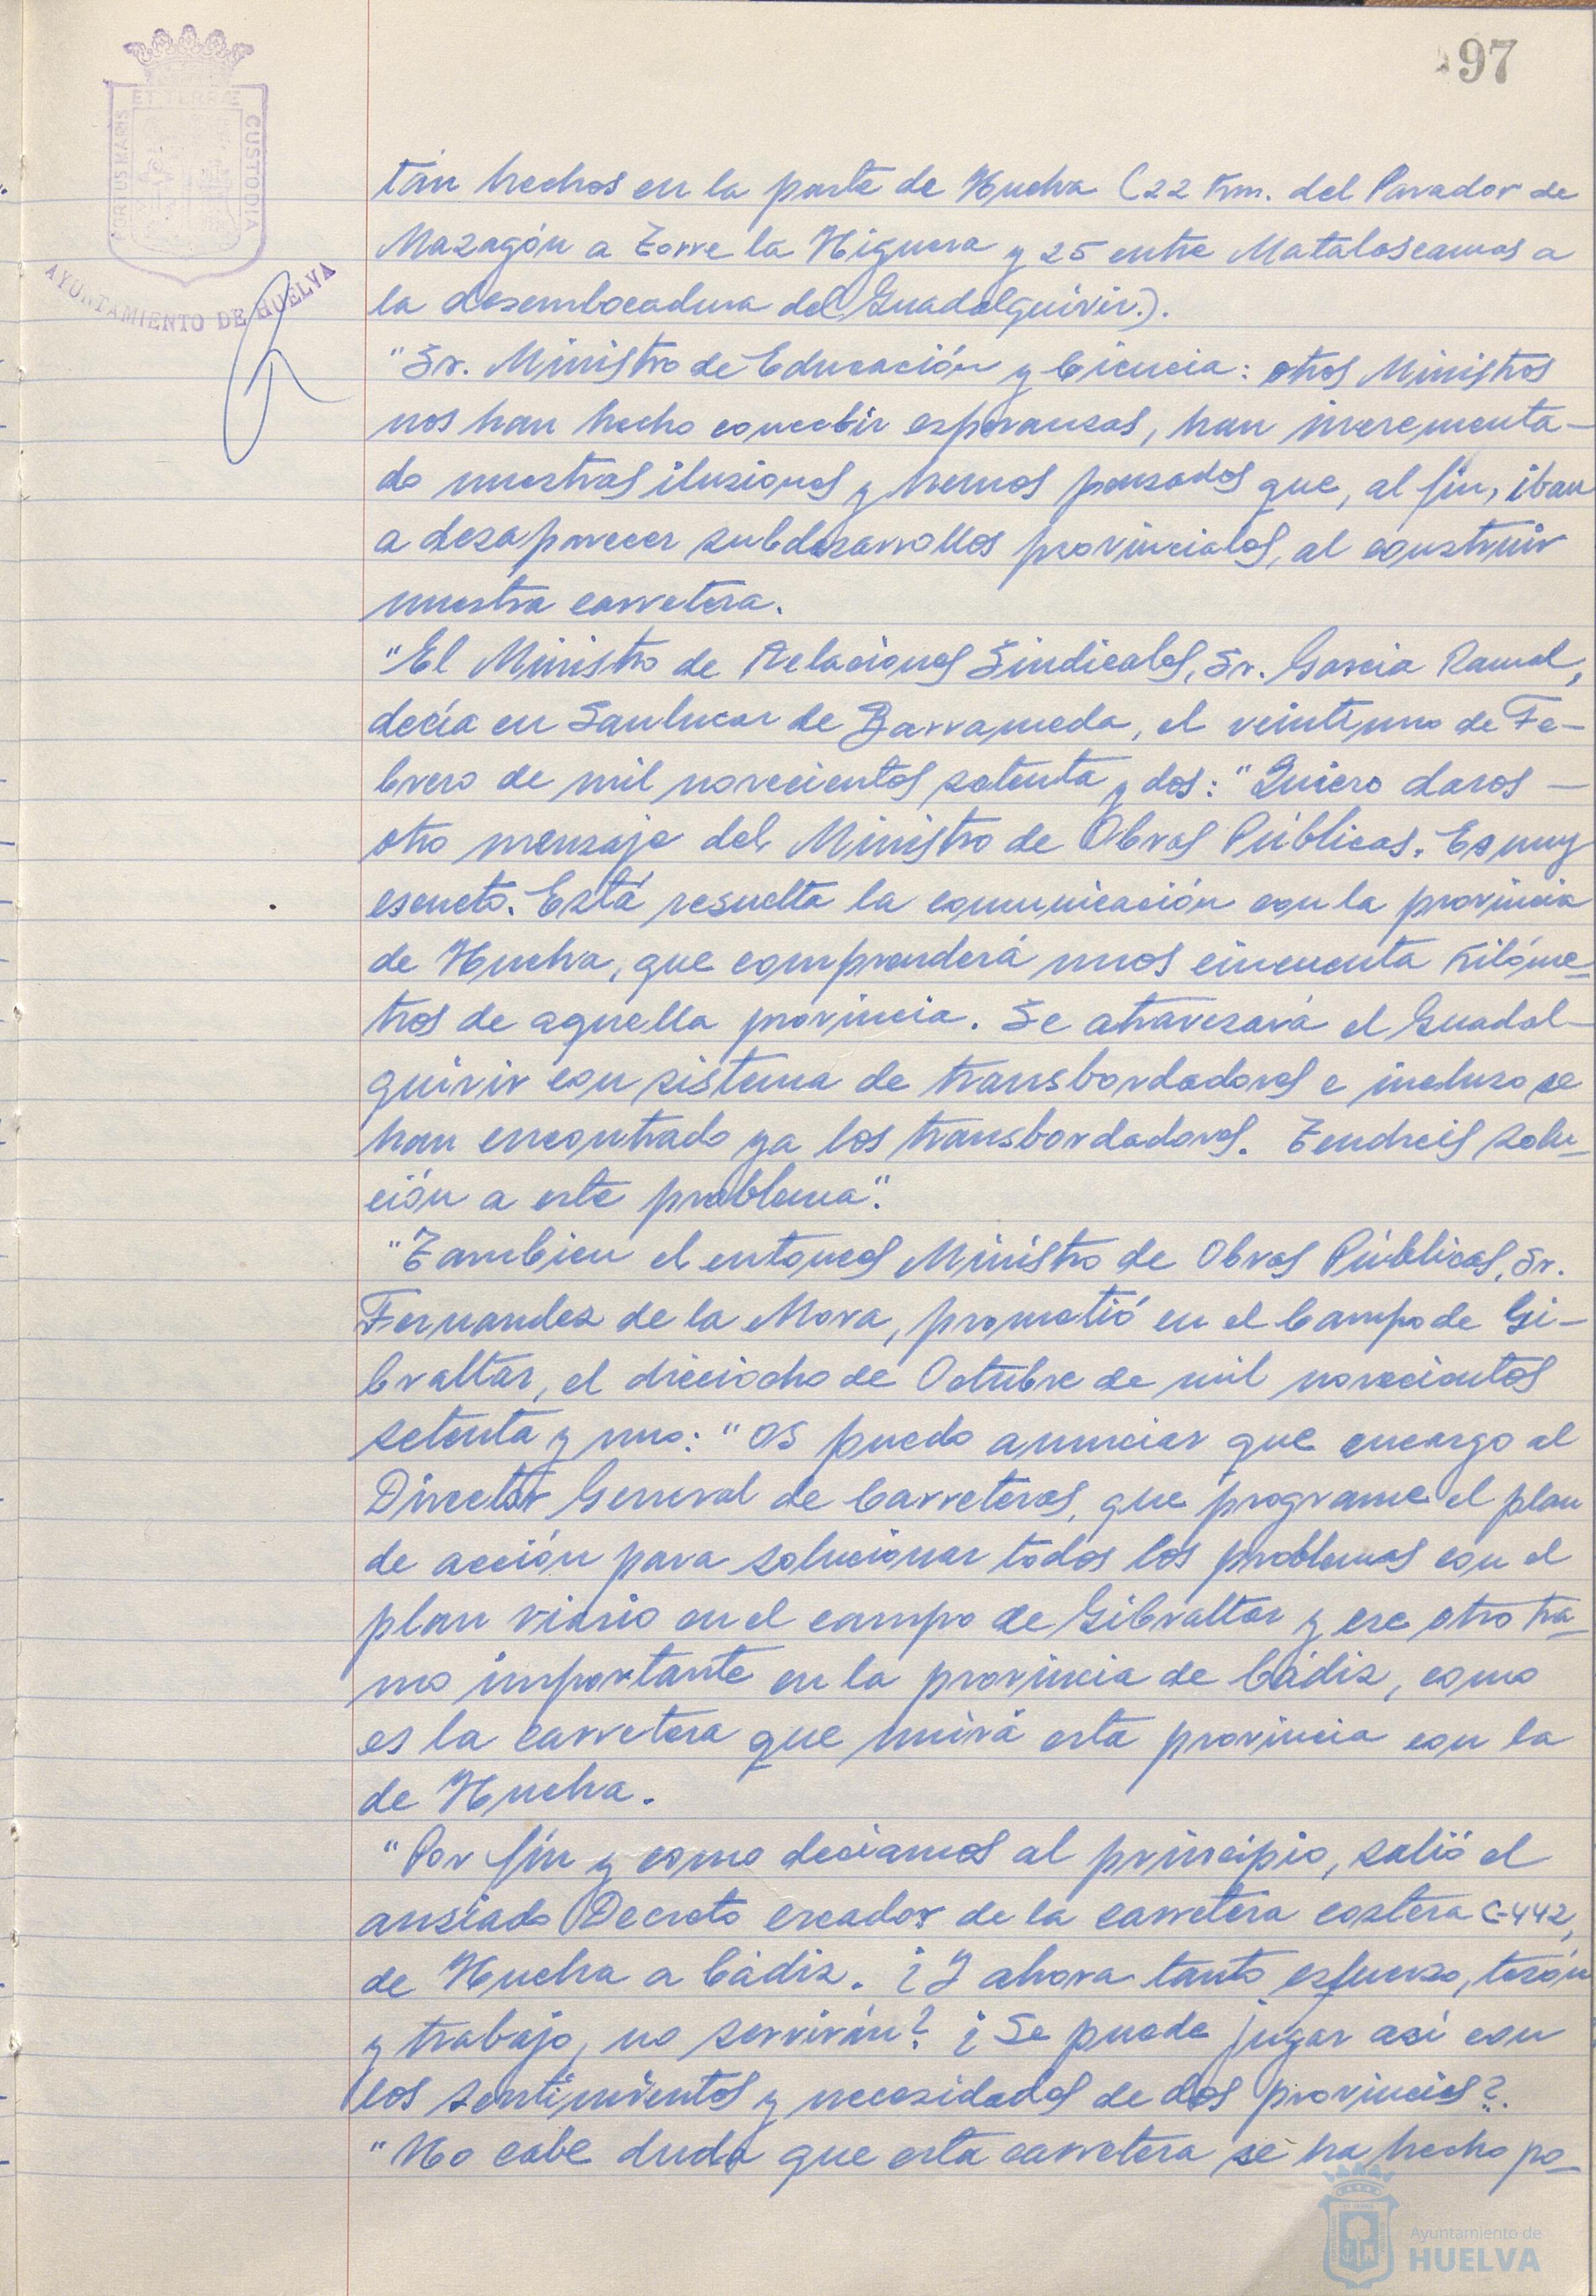 97
ET TERRÆ
PORTUS MARIS
CUSTODIA
AYUNTAMIENTO DE HUELVA
tán hechos en la parte de Huelva (22 Km. del Parador de
Mazagón a Torre la Higuera y 25 entre Matalascamas a
la desembocadura del Guadalquivir.).
"Sr. Ministro de Educación y Ciencia: otros Ministros
nos han hecho concebir esperanzas, han incrementa-
do nuestras ilusiones y hemos pensados que, al fin, iban
a desaparecer subdesarrollos provinciales, al construir
nuestra carretera.
"El Ministro de Relaciones Sindicales, Sr. Garcia Ramal,
decía en Sanlucar de Barrameda, el veintiuno de Fe-
brero de mil novecientos setenta y dos: "Quiero daros -
otro mensaje del Ministro de Obras Públicas. Es muy
escueto. Está resuelta la comunicación con la provincia
de Huelva, que comprenderá unos cincuenta Kilóme-
tros de aquella provincia. Se atravesará el Guadal-
quivir con sistema de transbordadores e incluso se
han encontrado ya los transbordadores. Tendreis solu-
ción a este problema".
"Tambien el entonces Ministro de Obras Públicas, Sr.
Fernandez de la Mora, prometió en el Campo de Gi-
braltar, el dieciocho de Octubre de mil novecientos
setenta y uno: "Os puedo anunciar que encargo al
Director General de Carreteras, que programe el plan
de acción para solucionar todos los problemas con el
plan viario en el campo de Gibraltar y ese otro tra-
mo importante en la provincia de Cádiz, como
es la carretera que unirá esta provincia con la
de Huelva.
"Por fín y como deciamos al principio, salió el
ansiado Decreto creador de la carretera costera C-442,
de Huelva a Cádiz. ¿Y ahora tanto esfuerzo, tesón
y trabajo, no servirán? ¿Se puede jugar así con
los sentimientos y necesidades de dos provincias?.
"No cabe duda que esta carretera se ha hecho po-
Ayuntamiento de
HUELVA